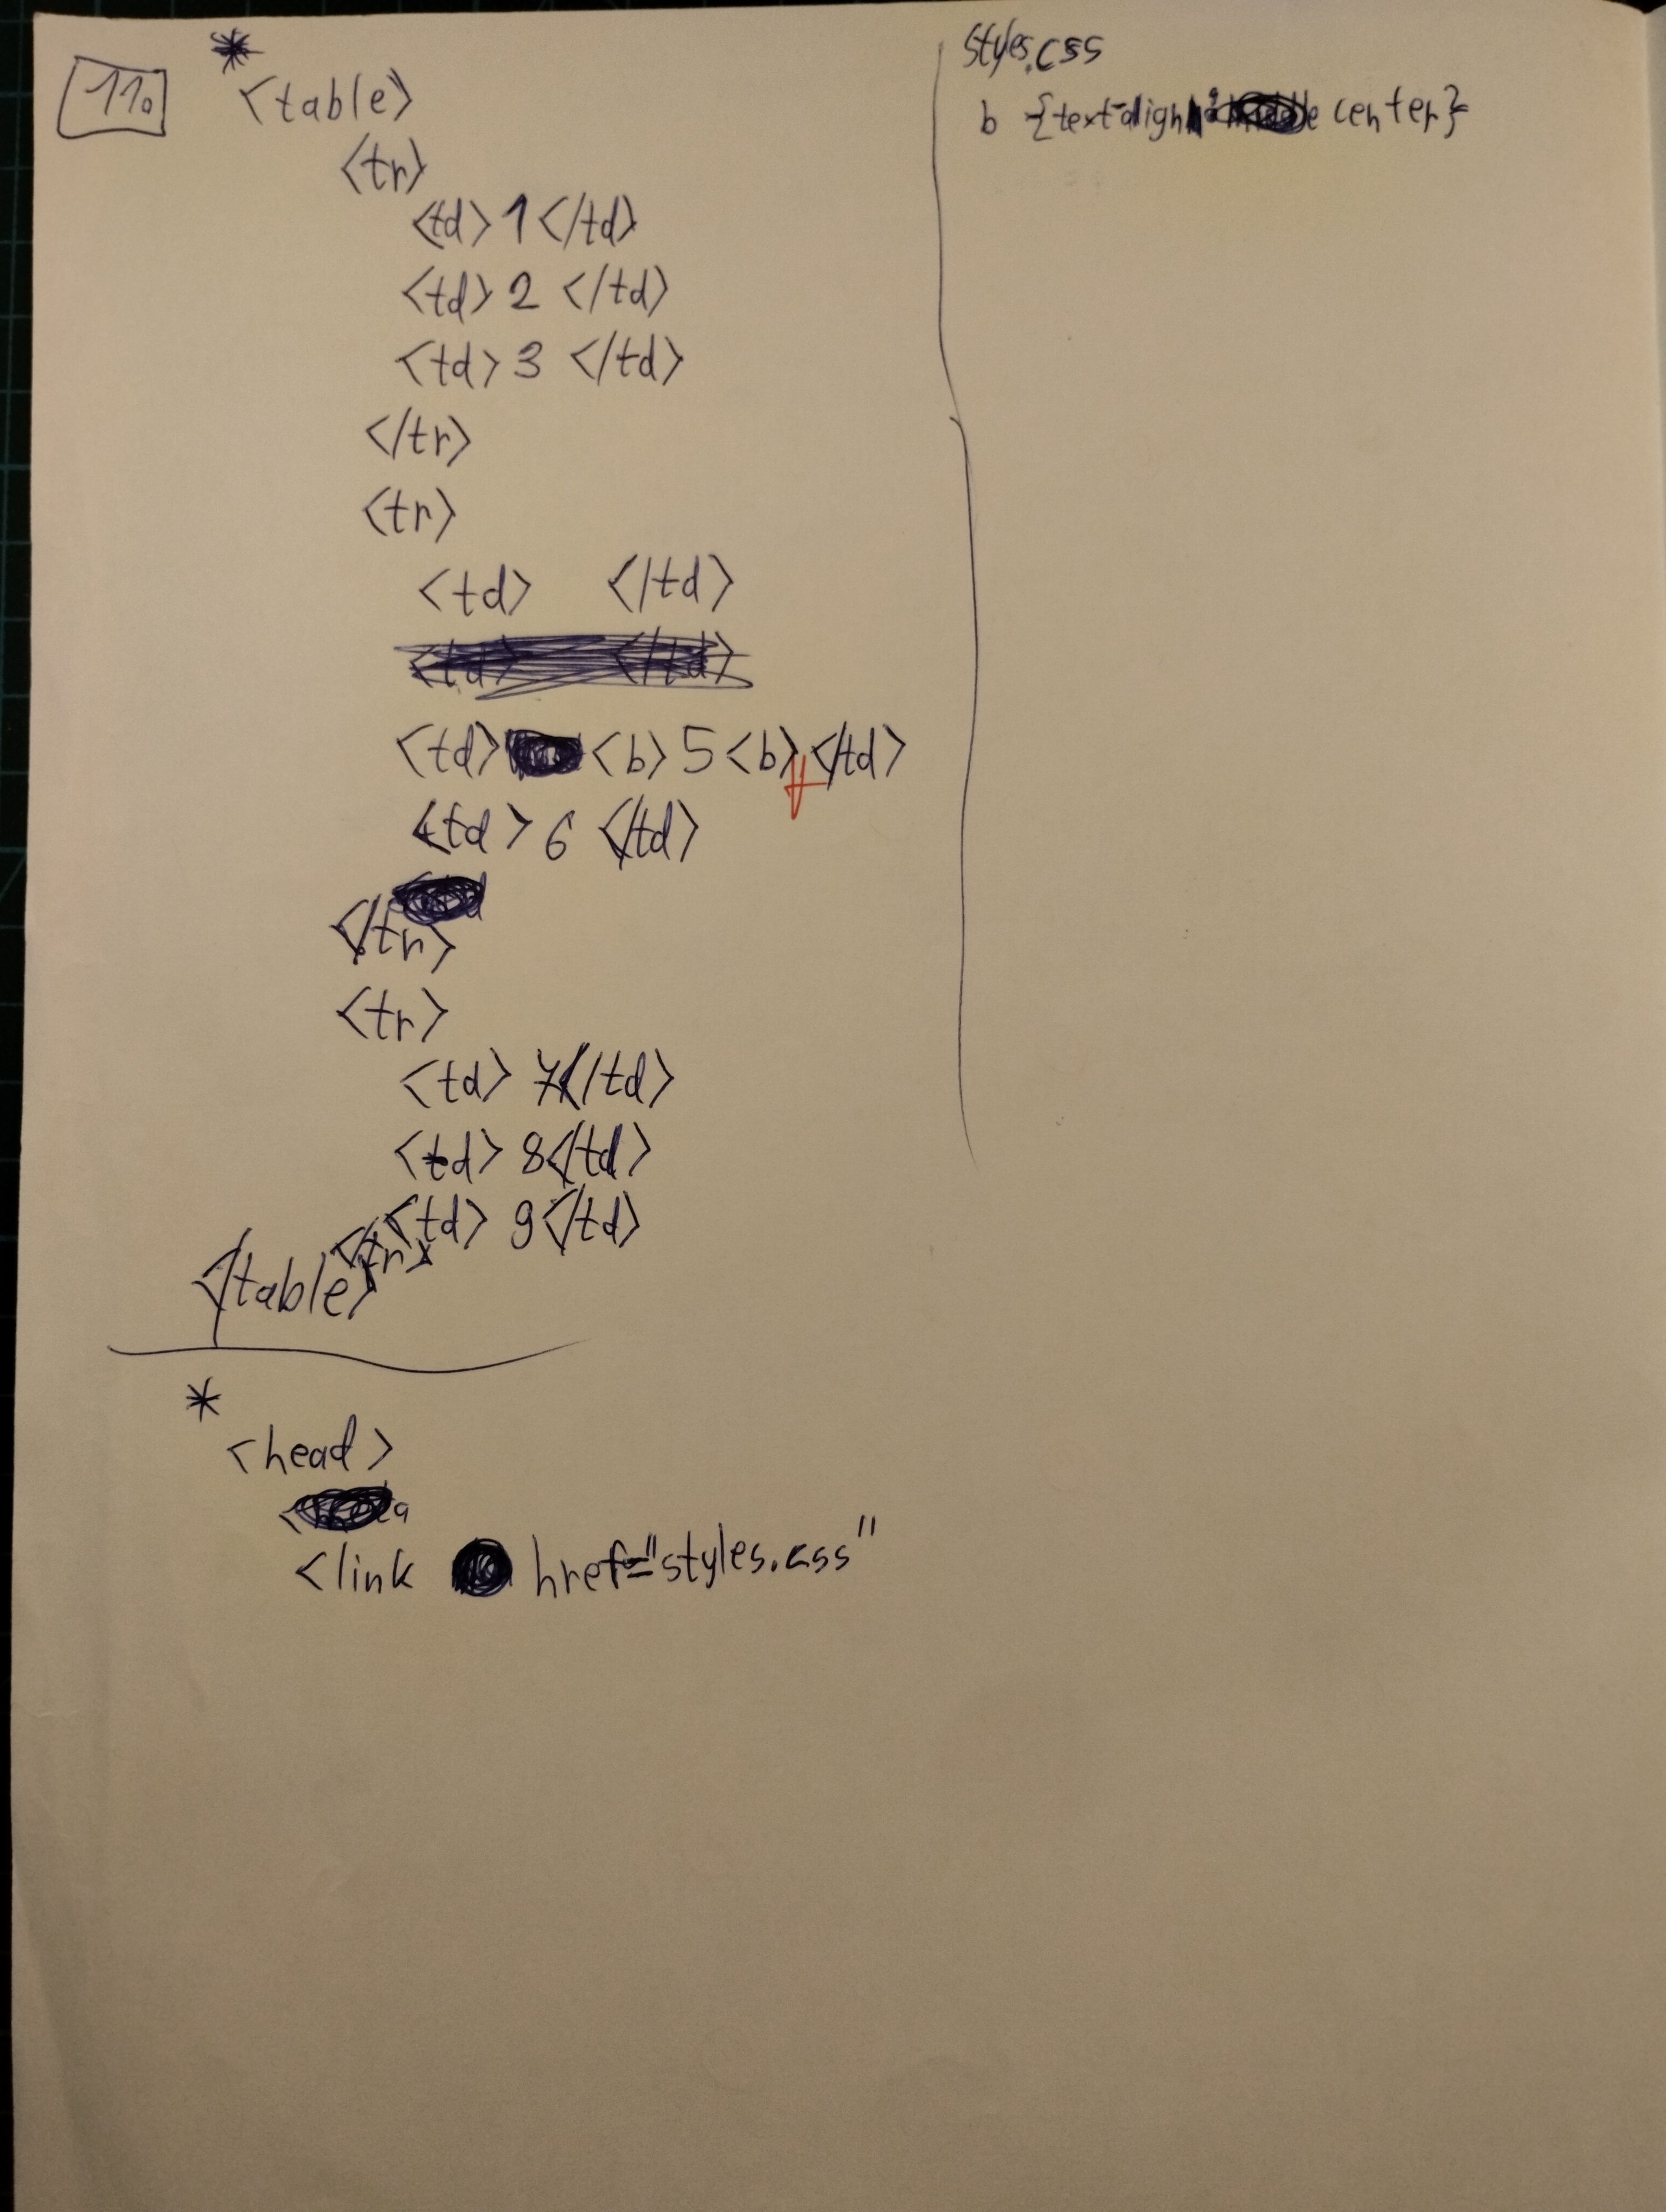 11.
*
<table>
<tr>
<td> 1 </td>
<td> 2 </td>
<td> 3 </td>
</tr>
<tr>
<td> </td>
<td> <b> 5 <b> </td>
<td> 6 </td>
</tr>
<tr>
<td> 7 </td>
<td> 8 </td>
<td> 9 </td>
</tr>
</table>
*
<head>
<link href="styles.css"
styles.css
b {text-align: center}